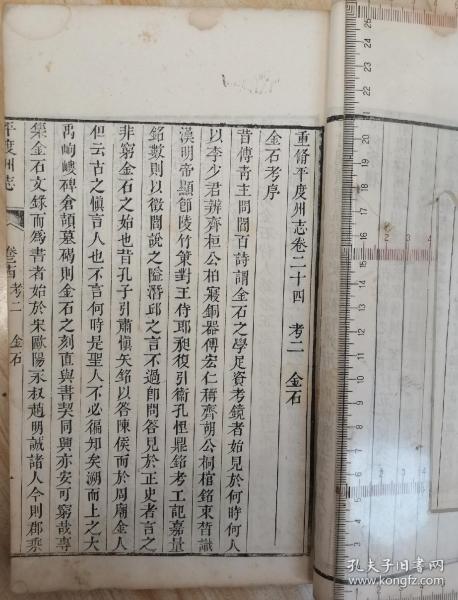 重脩平度州志卷二十四 考二 金石
金石考序
昔傅青主問閻百詩謂金石之學足資考鏡者始見於何時何人
以李少君辨齊桓公柏寢銅器傅宏仁稱齊胡公桐棺銘束皙識
漢明帝顯節陵竹策對王侍郎駮復引衞孔悝鼎銘考工記嘉量
銘數則以徵閻說之隘潛邱之言不過卽問答見於正史者言之
非窮金石之始也昔孔子引肅愼矢銘以答陳侯而於周廟金人
但云古之愼言人也不言何時是聖人不必徧知矣溯而上之大
禹岣嶁碑倉頡墓碣則金石之刻直與書契同興亦安可窮哉專
集金石文錄而爲書者始於宋歐陽永叔趙明誠諸人今則郡乘
平度州志
卷二十四 考二 金石
孔夫子旧书网
www.kongfz.com